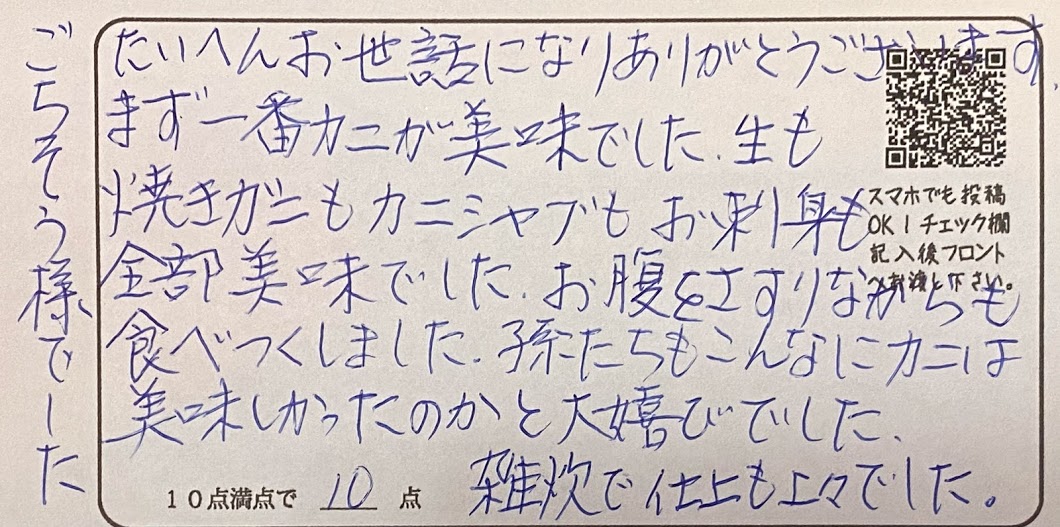 たいへんお世話になりありがとうございます
まず一番カニが美味でした、生も
焼きガニもカニシャブもお刺身も
全部美味でした、お腹をさすりながらも
食べつくしました、孫たちもこんなにカニは
美味しかったのかと大嬉びでした、
雑炊で仕上も上々でした。
ごちそう様でした
スマホでも投稿
OK!チェック欄
記入後フロント
へお渡し下さい。
10点満点で 10 点